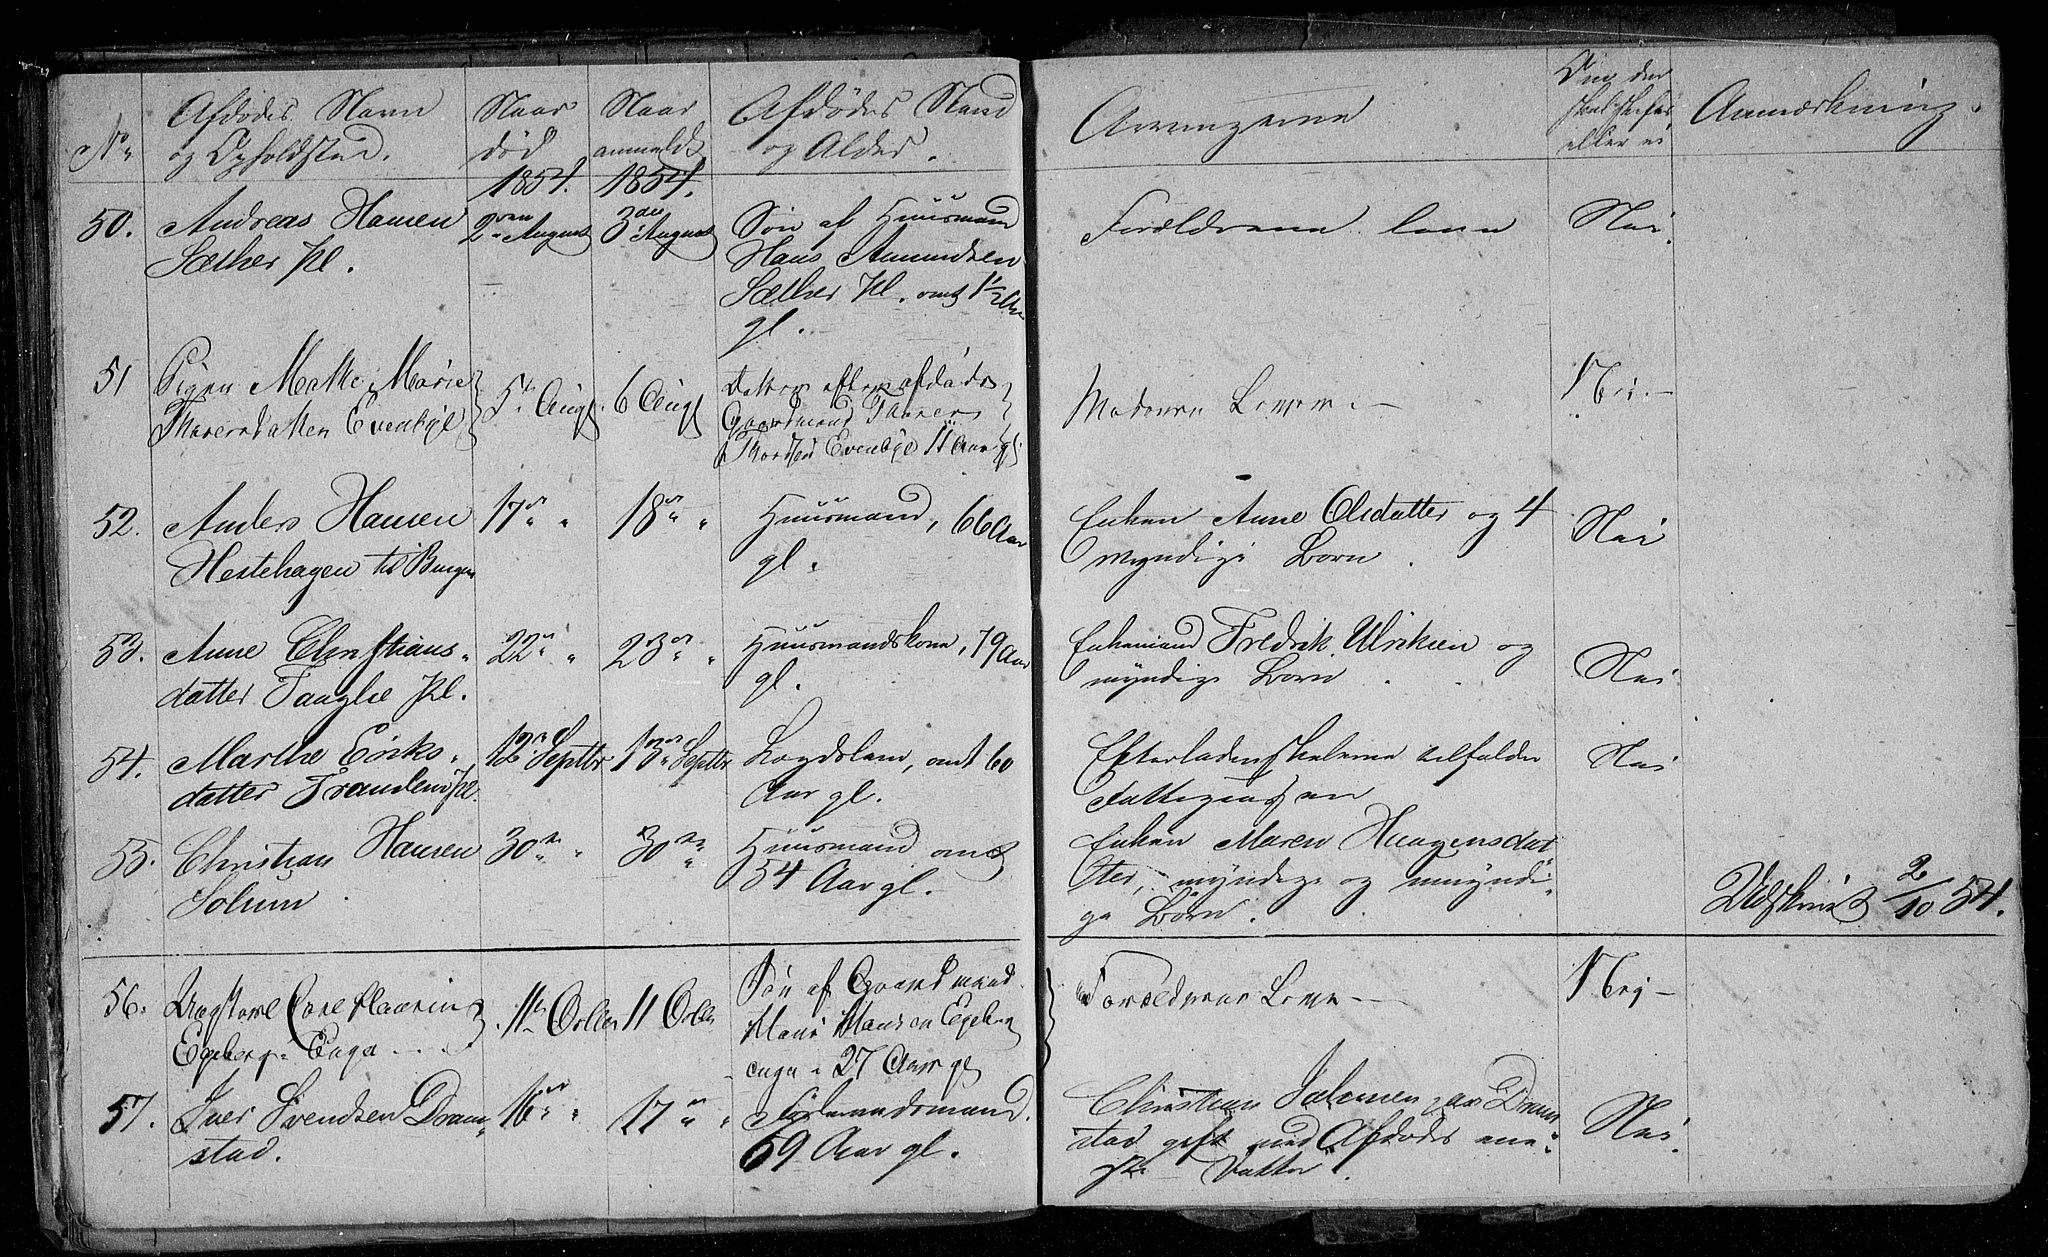 No
Afdødes Navn
og Opholdsted.
Naar
død
1854.
Naar
anmeldt
1854.
Afdødes Stand
og Alder.
Arvingerne
Om der
skal skiftes
eller ei
Anmærkning.
50.
Andreas Hansen
Sæther Pl.
2den August
3die August
Søn af Huusmand
Hans Amundsen
Sæther Pl. omt 1 1/2 Aar
gl.
Forældrene leve
Nei.
51
Pigen Mathe Marie
Thorersdatter Evenbye
5te Augt.
6 Augt
Datter efter afdøde
Gaardmand Thorer
Thordsen Evenbye 11 Aar gl
Moderen Lever. —
Nei. —
52.
Anders Hansen
Hestehagen til Burgen
17de "
18de "
Huusmand, 66 Aar
gl.
Enken Anne Olsdatter og 4
myndige Børn.
Nei
53.
Anne Christians-
datter Taaglie Pl.
22de "
23de "
Huusmandskone, 79 Aar
gl.
Enkemand Fredrik Ulriksen og
myndige Børn.
Nei
54.
Marthe Eriks-
datter Pl.
12te Septbr
13de Septbr
Lægdslem, omt 60
Aar gl.
Efterladenskaberne tilfalder
Fattigcassen
Nei
55.
Christian Hansen
Solum
30te "
30te "
Huusmand omt
54 Aar gl.
Enken Maren Haagensdat
ter, myndige og umyndi-
ge Børn.
Udskrivt 2/10 54.
56.
Ungkarl Carelaarius
Egeberg Enga
11te Octbr
11 Octbr
Søn af Gaardmand
Hans Hansen Egeberg
enga 27 Aar gl
Forældrene Leve —
Nej —
57.
Iver Svendsen Dram-
stad.
16de "
17de "
Føderaadsmand.
69 Aar gl.
Christian Jacobsen paa Dram-
stad gift med Afdødes ene-
ste Datter.
Nei.